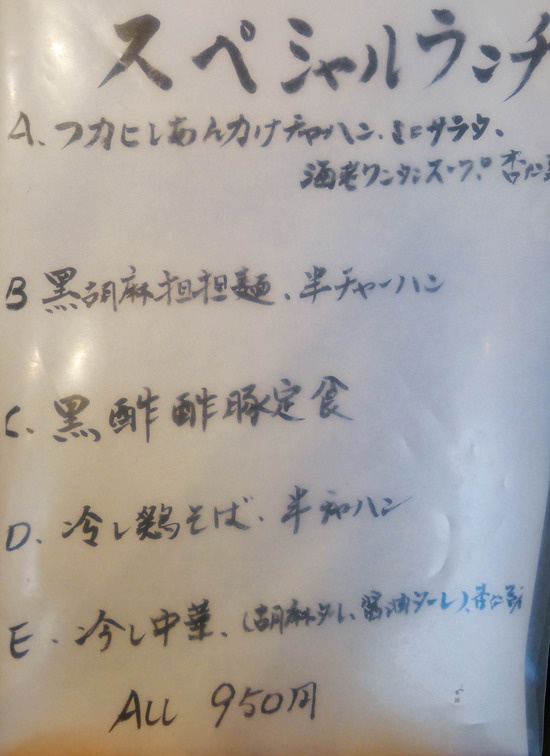 スペシャルランチ
A、フカヒレあんかけチャーハン、ミニサラダ、
海老ワンタンスープ、杏仁
B 黒胡麻担担麺、半チャーハン
C、黒酢酢豚定食
D、冷し鶏そば、半チャーハン
E、冷し中華、(胡麻ダレ、醤油ダレ)、杏仁
ALL 950円